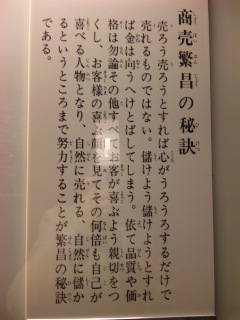 商売繁昌の秘訣
売ろう売ろうとすれば心がうろうろするだけで
売れるものではない。儲けよう儲けようとすれ
ば金は向うへけとばしてしまう。依て品質や価
格は勿論その他すべてお客が喜ぶよう親切をつ
くし、お客様の喜ぶ顔を見てその何倍も自己が
喜べる人物となり、自然に売れる、自然に儲か
るというところまで努力することが繁昌の秘訣
である。